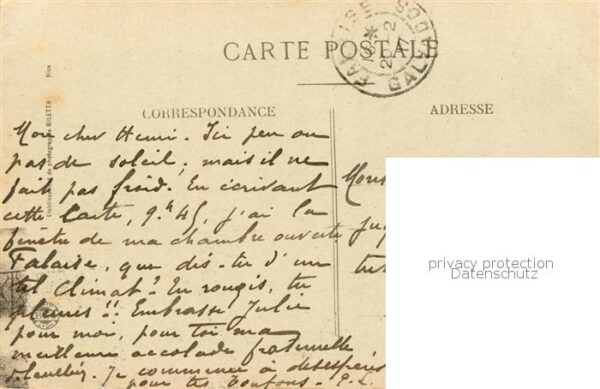 CARTE POSTALE
CORRESPONDANCE
ADRESSE
BILETTA Nice
Mon cher Henri. Ici peu ou
pas de soleil, mais il ne
fait pas froid. En écrivant
cette Carte, 9.h 45, j'ai la
fenêtre de ma chambre ouverte
Falaise, que dis-tu d'un
tel climat? En rougis, tu
pleures!! Embrasse Julie
pour moi, pour toi ma
meilleure accolade fraternelle
Je commence à désespérer
pour tes boutons.
privacy protection
Datenschutz